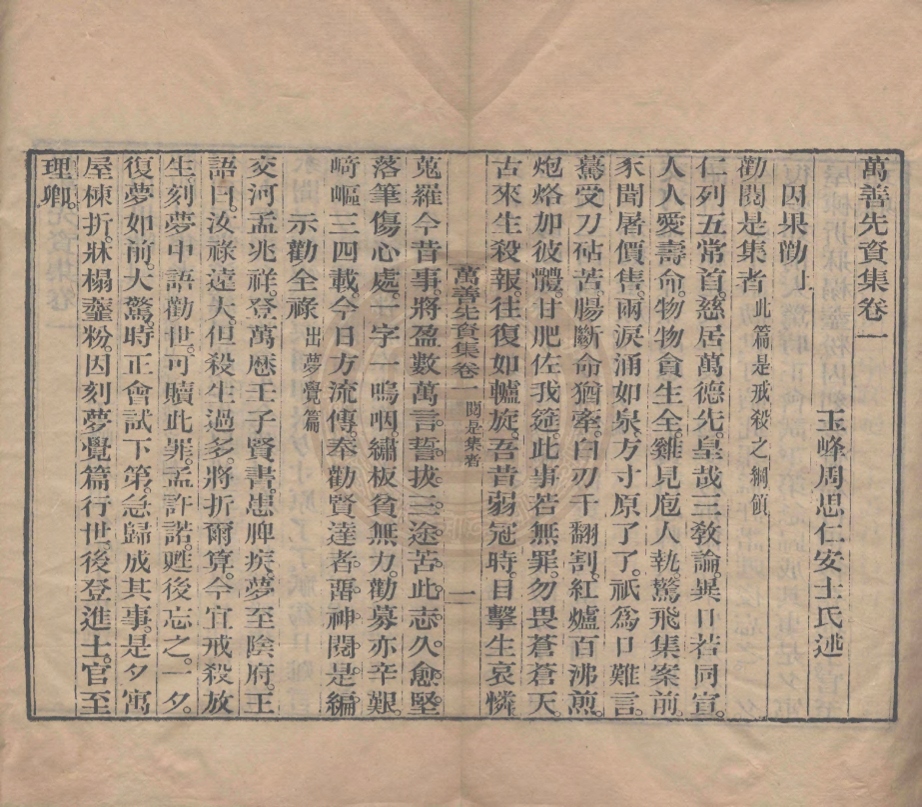 萬善先資集卷一
玉峰周思仁安士氏述
因果勸上
勸閱是集者此篇是戒殺之綱領
仁列五常首。慈居萬德先。皇哉三敎論。異口若同宣。
人人愛壽命。物物貪生全。雞見庖人執。驚飛集案前。
豕聞屠價售。兩淚涌如泉。方寸原了了。祇爲口難言。
驀受刀砧苦。腸斷命猶牽。白刃千翻割。紅爐百沸煎。
炮烙加彼體。甘肥佐我筵。此事若無罪。勿畏蒼蒼天。
古來生殺報。往復如轤旋。吾昔弱冠時。目擊生哀憐
萬善先資集卷一 閱是集者 一
蒐羅今昔事。將盈數萬言。誓拔三途苦。此志久愈堅。
落筆傷心處。一字一嗚咽。繡板貧無力。勸募亦辛艱。
﨑嶇三四載。今日方流傳。奉勸賢達者。畱神閱是編
示勸全祿出夢覺篇
交河孟兆祥。登萬厯壬子賢書。患脾疾。夢至陰府。王
語曰。汝祿遠大。但殺生過多。將折爾算。今宜戒殺放
生。刻夢中語勸世。可贖此罪。孟許諾。甦後忘之。一夕。
復夢如前。大驚。時正會試下第。急歸成其事。是夕寓
屋棟折。牀榻虀粉。因刻夢覺篇行世。後登進士。官至
理卿。